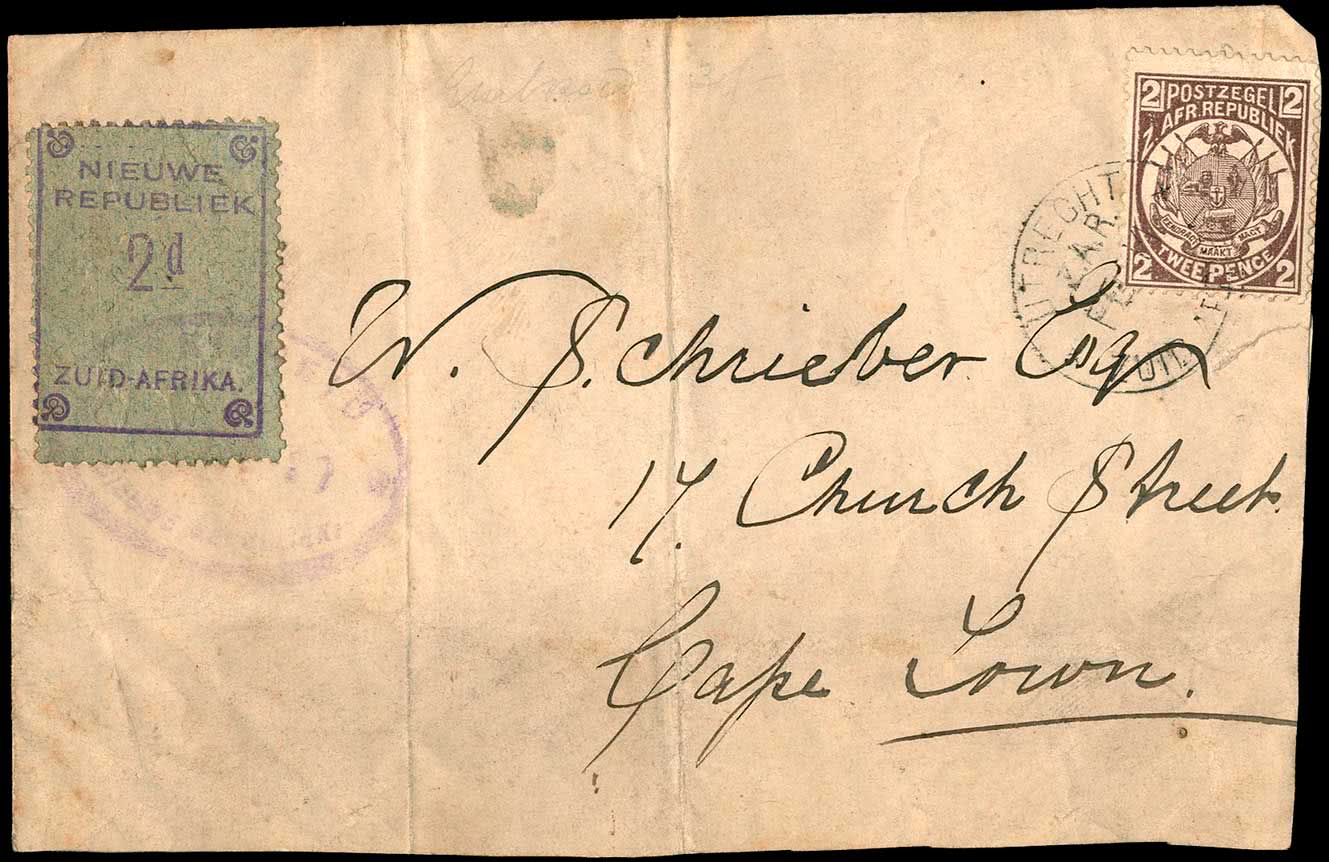 NIEUWE
REPUBLIEK
2d
ZUID-AFRIKA.
2 POSTZEGEL 2
AFR. REPUBLIEK
EENDRAGT MAAKT MAGT
2 TWEE PENCE 2
UTRECHT
Z.A.R.
W. Schrieber Esqr
17. Church Street
Cape Town.